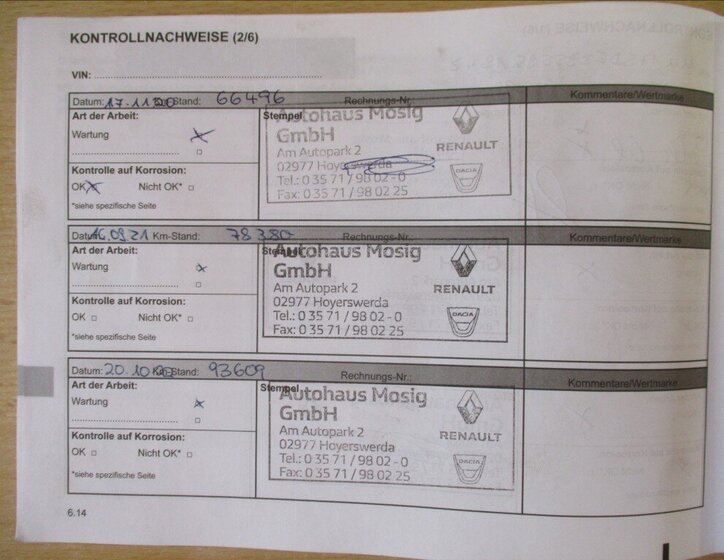 KONTROLLNACHWEISE (2/6)
VIN:
Datum: 17.11.20 Km-Stand: 66496 Rechnungs-Nr.: Kommentare/Wertmarke
Art der Arbeit: Stempel
Wartung
Kontrolle auf Korrosion:
OK Nicht OK*
*siehe spezifische Seite
Autohaus Mosig
GmbH
Am Autopark 2
02977 Hoyerswerda
Tel.: 0 35 71 / 98 02 - 0
Fax: 0 35 71 / 98 02 25
RENAULT
DACIA
Datum: 16.09.21 Km-Stand: 78380 Rechnungs-Nr.: Kommentare/Wertmarke
Art der Arbeit: Stempel
Wartung
Kontrolle auf Korrosion:
OK Nicht OK*
*siehe spezifische Seite
Autohaus Mosig
GmbH
Am Autopark 2
02977 Hoyerswerda
Tel.: 0 35 71 / 98 02 - 0
Fax: 0 35 71 / 98 02 25
RENAULT
DACIA
Datum: 20.10. Km-Stand: 93609 Rechnungs-Nr.: Kommentare/Wertmarke
Art der Arbeit: Stempel
Wartung
Kontrolle auf Korrosion:
OK Nicht OK*
*siehe spezifische Seite
Autohaus Mosig
GmbH
Am Autopark 2
02977 Hoyerswerda
Tel.: 0 35 71 / 98 02 - 0
Fax: 0 35 71 / 98 02 25
RENAULT
DACIA
6.14